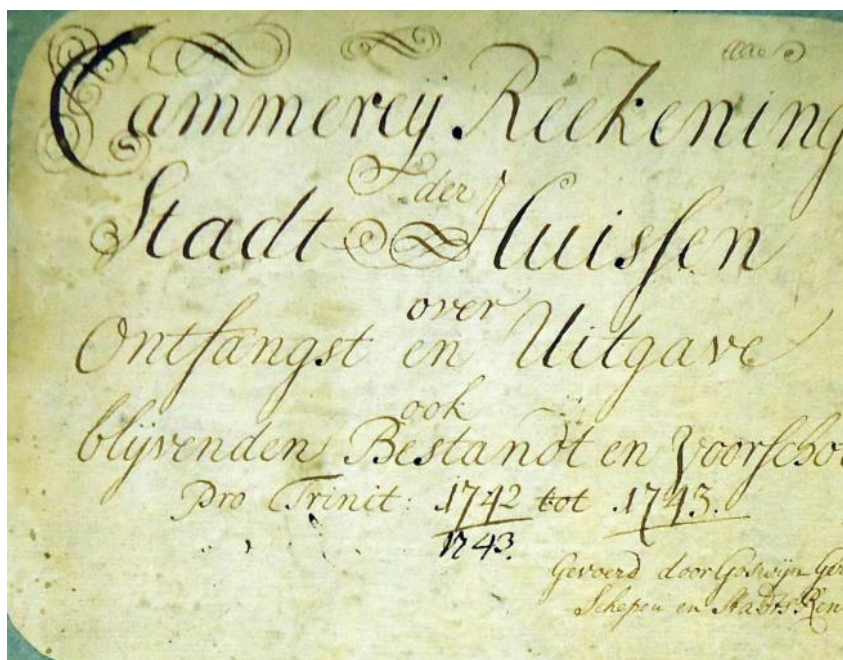 Cammereÿ Reekening
der
Stadt Huissen
over
Ontfangst en Uitgave
ook
blijvenden Bestandt en Voorscho
Pro Trinit: 1742 tot 1743.
1743.
Gevoerd door Goswijn Ger
Schepen en Stadts Ren